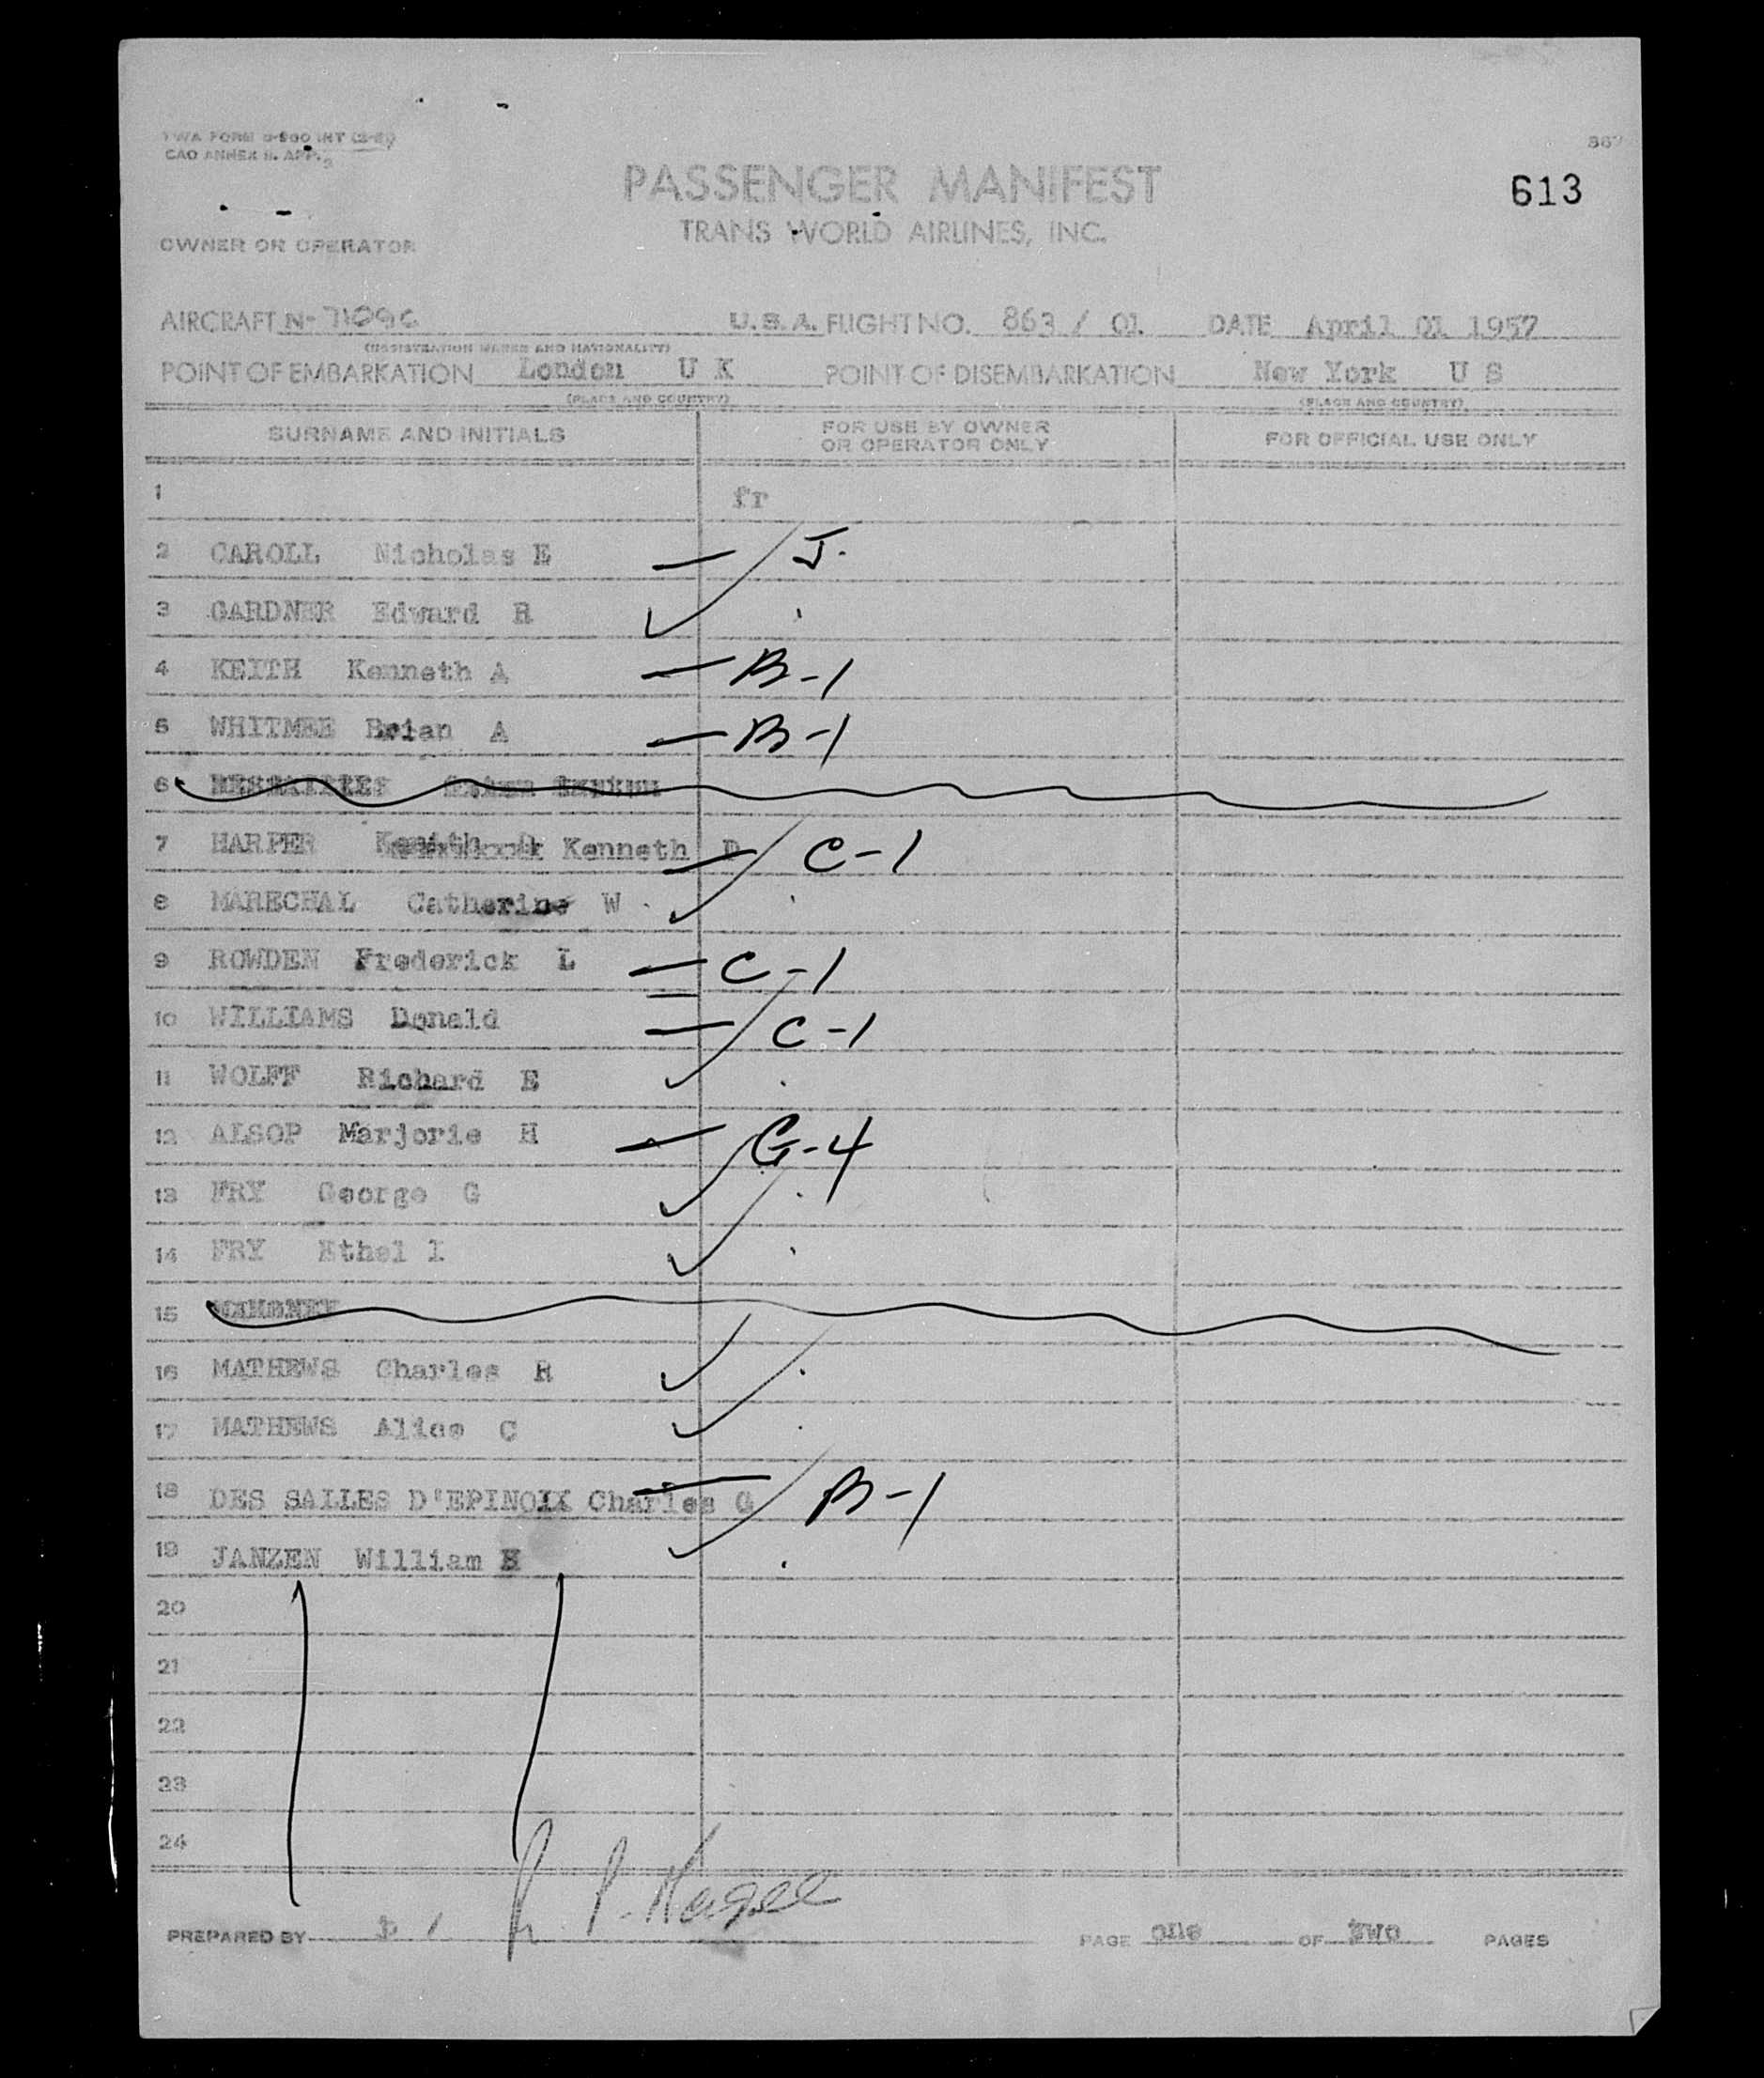 TWA FORM
CAO ANNEX 9. APP. 3
613
PASSENGER MANIFEST
TRANS WORLD AIRLINES, INC.
OWNER OR OPERATOR
AIRCRAFT N- U.S.A. FLIGHT NO. 863 / 01 DATE April 01 1957
(REGISTRATION MARKS AND NATIONALITY)
POINT OF EMBARKATION London U K POINT OF DISEMBARKATION New York U S
(PLACE AND COUNTRY) (PLACE AND COUNTRY)
SURNAME AND INITIALS FOR USE BY OWNER OR OPERATOR ONLY FOR OFFICIAL USE ONLY
1 fr
2 CAROLL Nicholas E J.
3 GARDNER Edward R
4 KEITH Kenneth A B-1
5 WHITMEE Brian A B-1
6
7 HARPER Kenneth D C-1
8 MARECHAL Catherine W
9 ROWDEN Frederick L C-1
10 WILLIAMS Donald C-1
11 WOLFF Richard E
12 ALSOP Marjorie H G-4
13 FRY George G
14 FRY Ethel I
15 MAHONEY
16 MATHEWS Charles R
17 MATHEWS Alice C
18 DES SALLES D'EPINOIX Charles G B-1
19 JANZEN William H
20
21
22
23
24
PREPARED BY PAGE one OF two PAGES